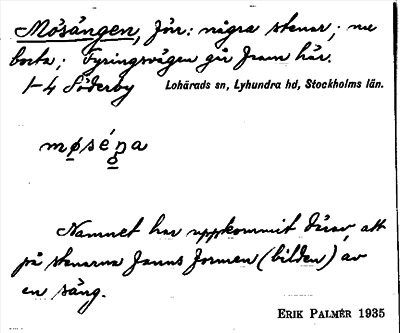 Mösängen, förr: några stenar; nu
borta; Fyringsvägen går fram här.
1-4 Söderby Lohärads sn, Lyhundra hd, Stockholms län.
møséŋa
Namnet har uppkommit därav, att
på stenarna fanns formen (bilden) av
en säng.
ERIK PALMÉR 1935